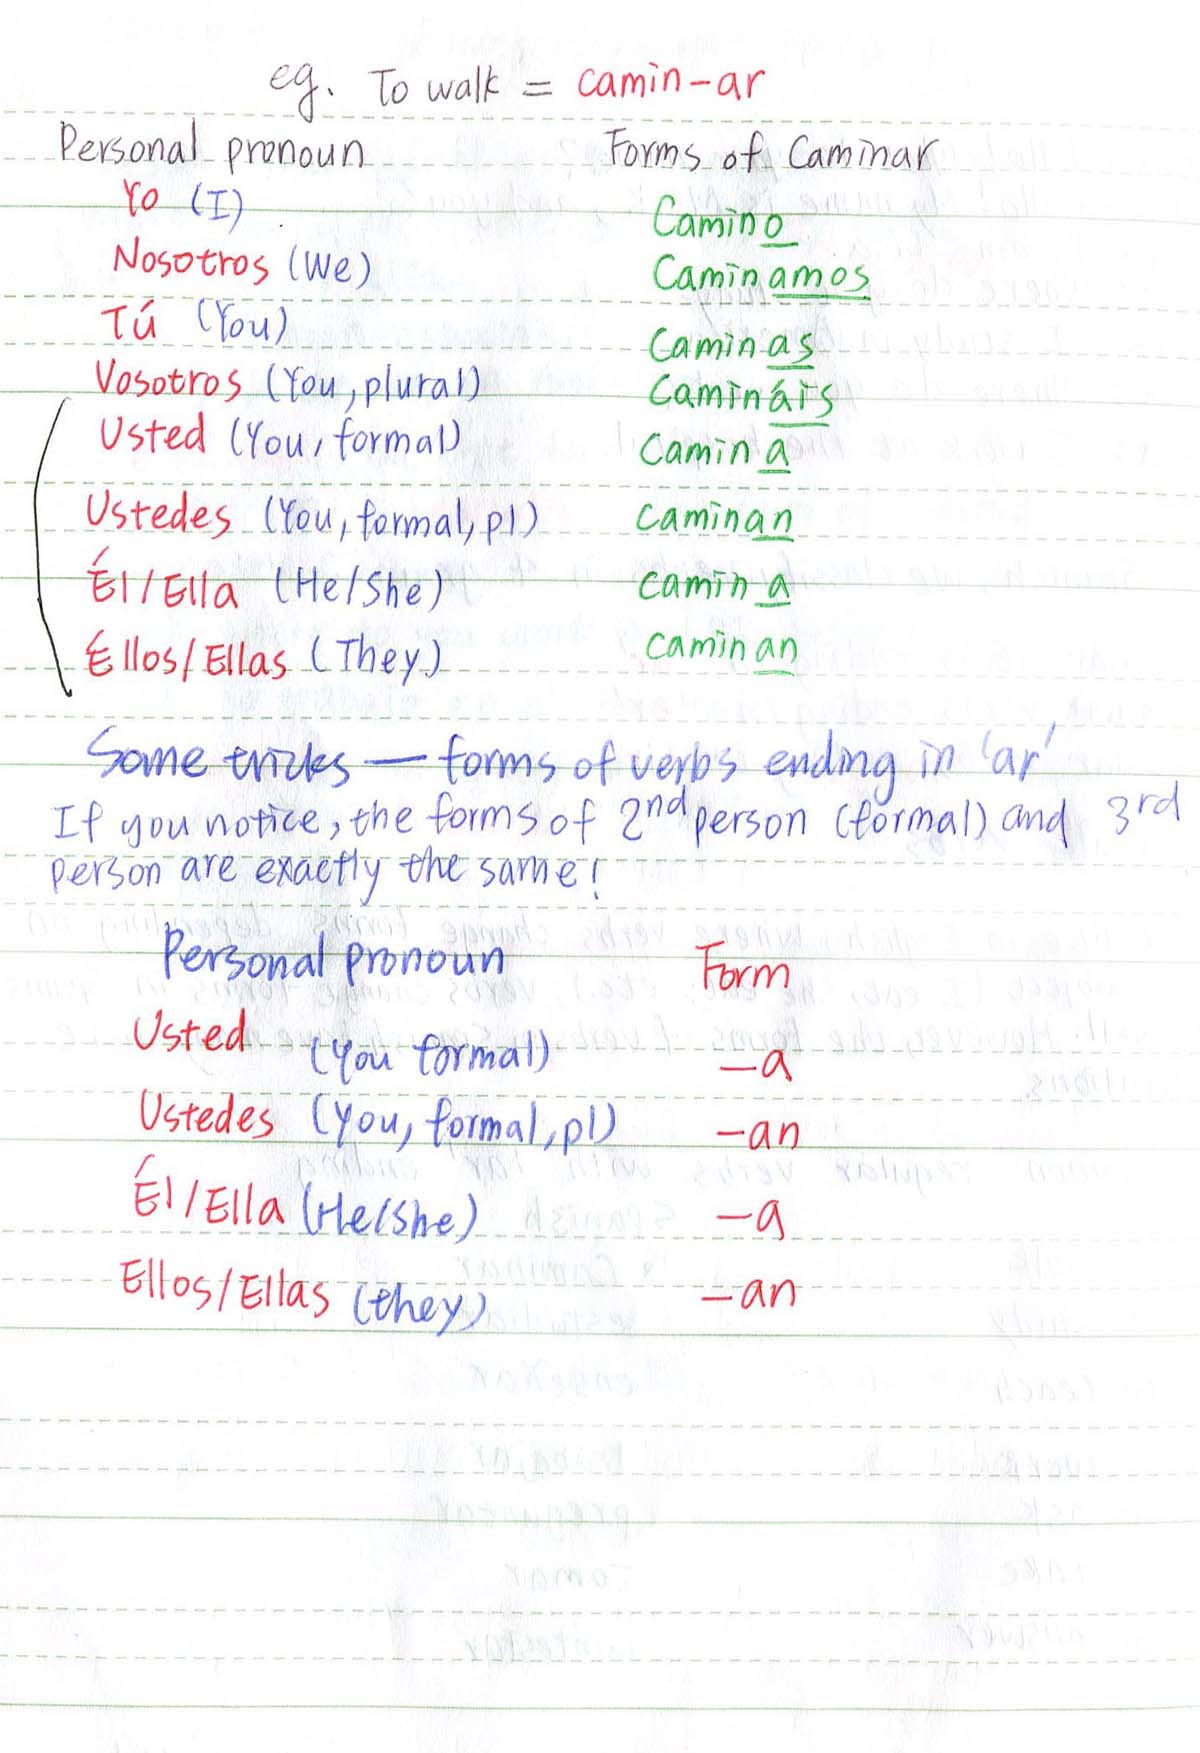 eg. To walk = camin-ar
Personal pronoun Forms of Caminar
Yo (I) Camino
Nosotros (We) Caminamos
Tú (You) Caminas
Vosotros (You, plural) Camináis
Usted (You, formal) Camina
Ustedes (You, formal, pl) caminan
Él/Ella (He/She) camina
Éllos/Ellas (They) caminan
Some tricks — forms of verbs ending in 'ar'
If you notice, the forms of 2nd person (formal) and 3rd
person are exactly the same!
Personal pronoun Form
Usted (You formal) -a
Ustedes (You, formal, pl) -an
Él/Ella (He/She) -a
Ellos/Ellas (they) -an